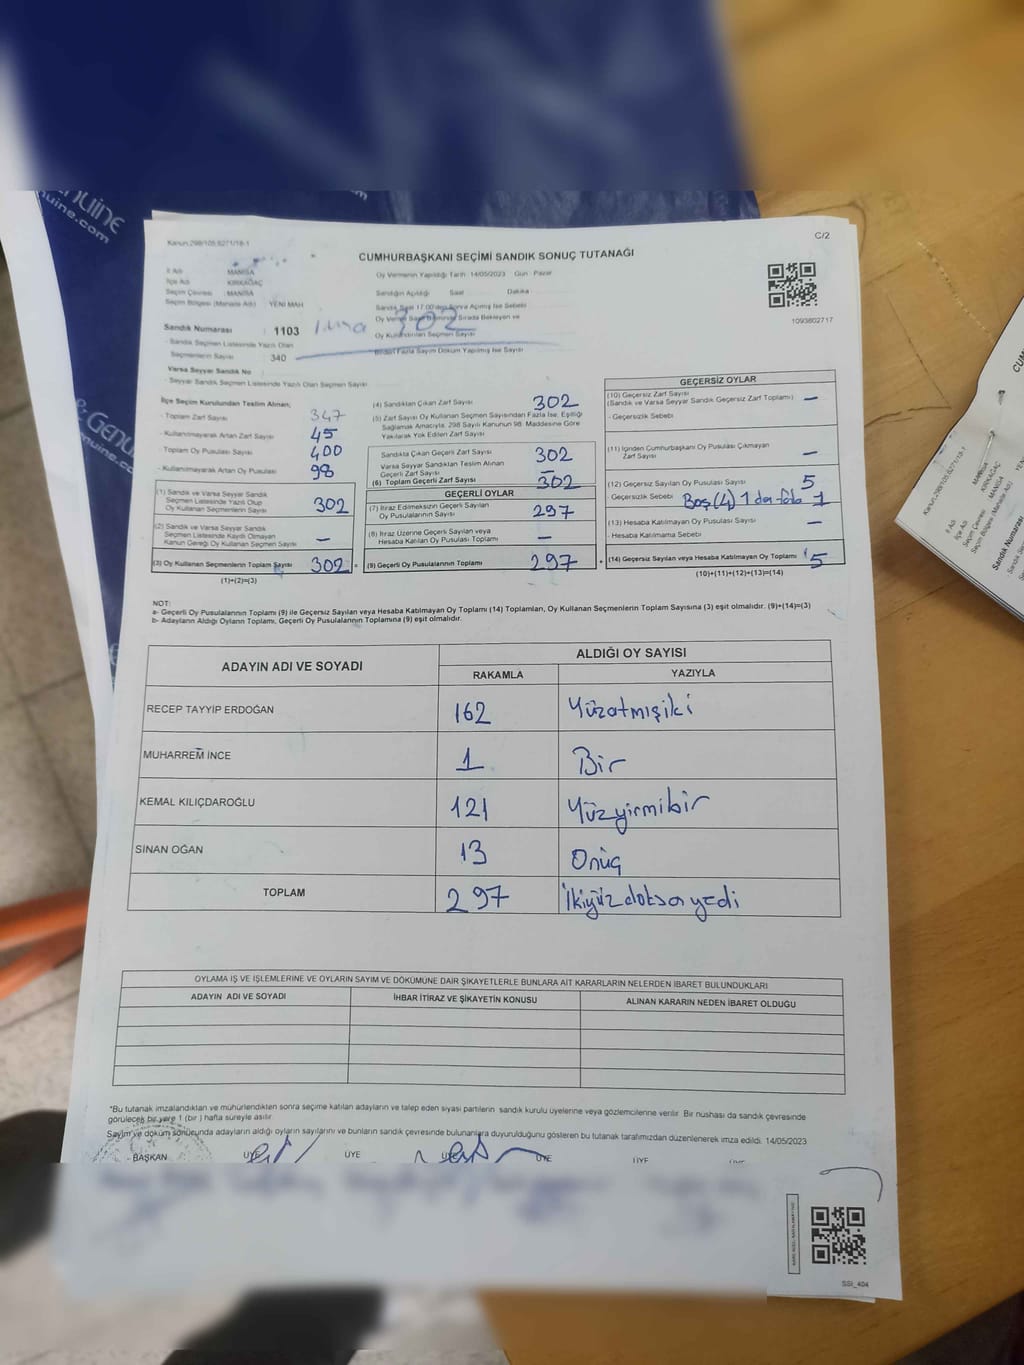 nuine
nuine.com
& Genu
nuine.com
Kanun:298/105,6271/18-1
C/2
CUMHURBAŞKANI SEÇİMİ SANDIK SONUÇ TUTANAĞI
İl Adı MANİSA
İlçe Adı KIRKAĞAÇ
Seçim Çevresi : MANİSA
Seçim Bölgesi (Mahalle Adı) YENİ MAH
Oy Vermenin Yapıldığı Tarih 14/05/2023 Gün : Pazar
Sandığın Açıldığı Saat Dakika
Sandık Saat 17.00'den Sonra Açılmış İse Sebebi
1093802717
Sandık Numarası : 1103 imza 302
- Sandık Seçmen Listesinde Yazılı Olan
Seçmenlerin Sayısı 340
Oy Kullandırılan Seçmen Sayısı
Birden Fazla Sayım Döküm Yapılmış İse Sayısı
Varsa Seyyar Sandık No
- Seyyar Sandık Seçmen Listesinde Yazılı Olan Seçmen Sayısı
İlçe Seçim Kurulundan Teslim Alınan;
- Toplam Zarf Sayısı 347
- Kullanılmayarak Artan Zarf Sayısı 45
- Toplam Oy Pusulası Sayısı 400
- Kullanılmayarak Artan Oy Pusulası 98
(1) Sandık ve Varsa Seyyar Sandık
Seçmen Listesinde Yazılı Olup
Oy Kullanan Seçmenlerin Sayısı 302
(2) Sandık ve Varsa Seyyar Sandık
Seçmen Listesinde Kayıtlı Olmayan
Kanun Gereği Oy Kullanan Seçmen Sayısı –
(3) Oy Kullanan Seçmenlerin Toplam Sayısı 302
(1)+(2)=(3)
(4) Sandıktan Çıkan Zarf Sayısı 302
(5) Zarf Sayısı Oy Kullanan Seçmen Sayısından Fazla İse, Eşitliği
Sağlamak Amacıyla, 298 Sayılı Kanunun 98. Maddesine Göre
Yakılarak Yok Edilen Zarf Sayısı
Sandıkta Çıkan Geçerli Zarf Sayısı 302
Varsa Seyyar Sandıktan Teslim Alınan
Geçerli Zarf Sayısı –
(6) Toplam Geçerli Zarf Sayısı 302
GEÇERLİ OYLAR
(7) İtiraz Edilmeksizin Geçerli Sayılan
Oy Pusulalarının Sayısı 297
(8) İtiraz Üzerine Geçerli Sayılan veya
Hesaba Katılan Oy Pusulası Toplamı –
(9) Geçerli Oy Pusulalarının Toplamı 297
GEÇERSİZ OYLAR
(10) Geçersiz Zarf Sayısı
(Sandık ve Varsa Seyyar Sandık Geçersiz Zarf Toplamı) –
- Geçersizlik Sebebi
(11) İçinden Cumhurbaşkanı Oy Pusulası Çıkmayan
Zarf Sayısı –
(12) Geçersiz Sayılan Oy Pusulası Sayısı 5
- Geçersizlik Sebebi Boş (4) 1 da fazla 1
(13) Hesaba Katılmayan Oy Pusulası Sayısı –
- Hesaba Katılmama Sebebi
(14) Geçersiz Sayılan veya Hesaba Katılmayan Oy Toplamı 5
(10)+(11)+(12)+(13)=(14)
NOT:
a- Geçerli Oy Pusulalarının Toplamı (9) ile Geçersiz Sayılan veya Hesaba Katılmayan Oy Toplamı (14) Toplamları, Oy Kullanan Seçmenlerin Toplam Sayısına (3) eşit olmalıdır. (9)+(14)=(3)
b- Adayların Aldığı Oyların Toplamı, Geçerli Oy Pusulalarının Toplamına (9) eşit olmalıdır.
ADAYIN ADI VE SOYADI ALDIĞI OY SAYISI
RAKAMLA YAZIYLA
RECEP TAYYİP ERDOĞAN 162 Yüzatmışiki
MUHARREM İNCE 1 Bir
KEMAL KILIÇDAROĞLU 121 Yüzyirmibir
SİNAN OĞAN 13 Onüç
TOPLAM 297 İkiyüzdoksayedi
OYLAMA İŞ VE İŞLEMLERİNE VE OYLARIN SAYIM VE DÖKÜMÜNE DAİR ŞİKAYETLERLE BUNLARA AİT KARARLARIN NELERDEN İBARET BULUNDUKLARI
ADAYIN ADI VE SOYADI İHBAR İTİRAZ VE ŞİKAYETİN KONUSU ALINAN KARARIN NEDEN İBARET OLDUĞU
*Bu tutanak imzalandıktan ve mühürlendikten sonra seçime katılan adayların ve talep eden siyasi partilerin sandık kurulu üyelerine veya gözlemcilerine verilir. Bir nüshası da sandık çevresinde
görülecek bir yere 1 (bir ) hafta süreyle asılır.
Sayım ve döküm sonucunda adayların aldığı oyların sayılarını ve bunların sandık çevresinde bulunanlara duyurulduğunu gösteren bu tutanak tarafımızdan düzenlenerek imza edildi. 14/05/2023
BAŞKAN ÜYE ÜYE ÜYE ÜYE ÜYE
SSI_404